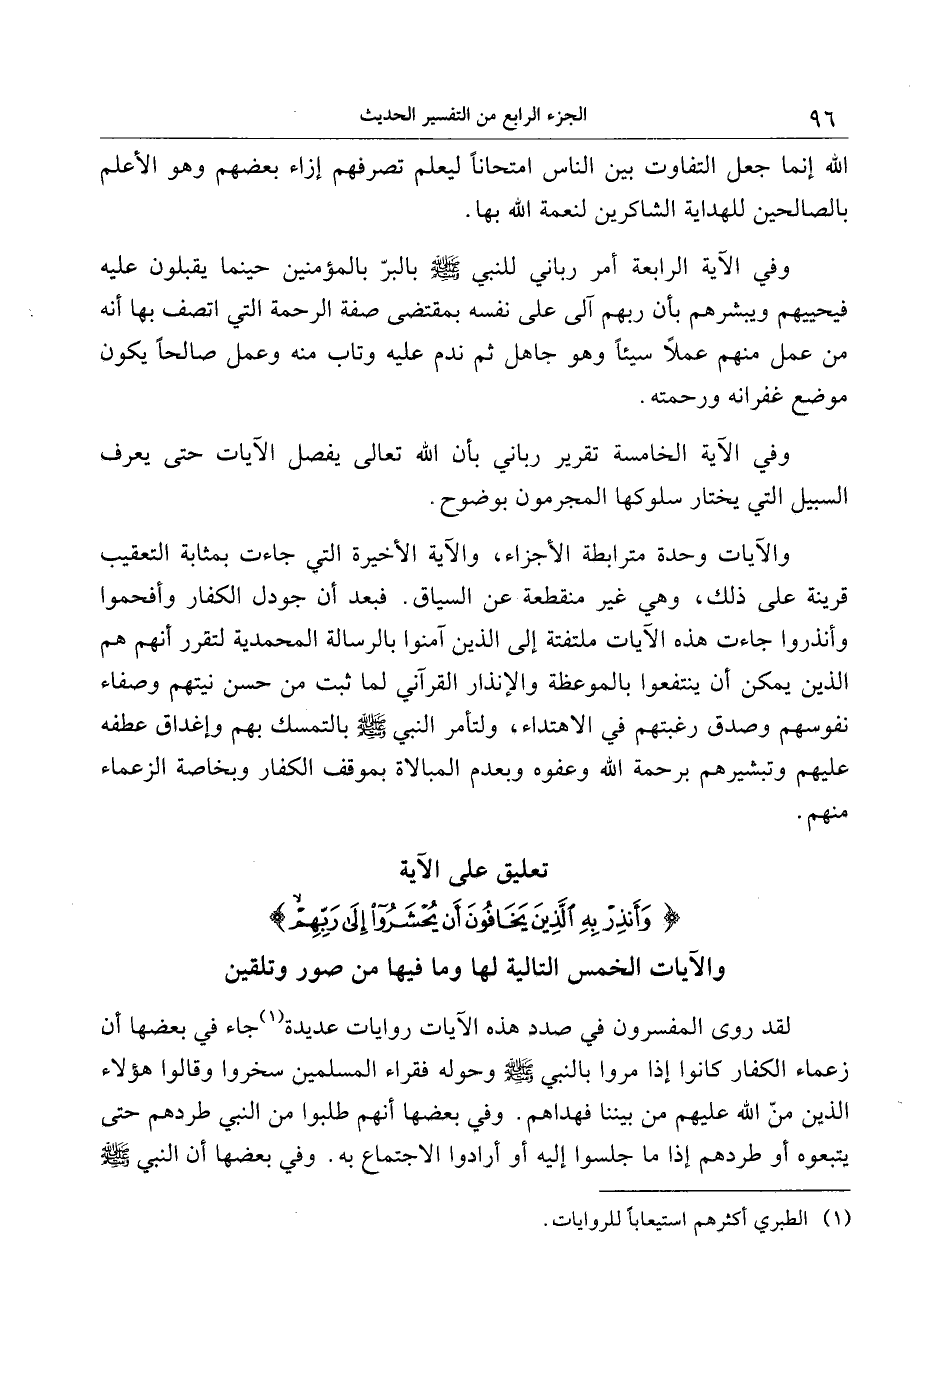 ٩٦
الجزء الرابع من التفسير الحديث
الله إنما جعل التفاوت بين الناس امتحاناً ليعلم تصرفهم إزاء بعضهم وهو الأعلم
بالصالحين للهداية الشاكرين لنعمة الله بها.
وفي الآية الرابعة أمر رباني للنبي ﷺ بالبرّ بالمؤمنين حينما يقبلون عليه
فيحييهم ويبشرهم بأن ربهم آلى على نفسه بمقتضى صفة الرحمة التي اتصف بها أنه
من عمل منهم عملاً سيئاً وهو جاهل ثم ندم عليه وتاب منه وعمل صالحاً يكون
موضع غفرانه ورحمته.
وفي الآية الخامسة تقرير رباني بأن الله تعالى يفصل الآيات حتى يعرف
السبيل التي يختار سلوكها المجرمون بوضوح.
والآيات وحدة مترابطة الأجزاء، والآية الأخيرة التي جاءت بمثابة التعقيب
قرينة على ذلك، وهي غير منقطعة عن السياق. فبعد أن جودل الكفار وأفحموا
وأنذروا جاءت هذه الآيات ملتفتة إلى الذين آمنوا بالرسالة المحمدية لتقرر أنهم هم
الذين يمكن أن ينتفعوا بالموعظة والإنذار القرآني لما ثبت من حسن نيتهم وصفاء
نفوسهم وصدق رغبتهم في الاهتداء، ولتأمر النبي ﷺ بالتمسك بهم وإغداق عطفه
عليهم وتبشيرهم برحمة الله وعفوه وبعدم المبالاة بموقف الكفار وبخاصة الزعماء
منهم.
تعليق على الآية
﴿ وَأَنذِرْ بِهِ ٱلَّذِينَ يَخَافُونَ أَن يُحْشَرُوٓا۟ إِلَىٰ رَبِّهِمْ ۙ ﴾
والآيات الخمس التالية لها وما فيها من صور وتلقين
لقد روى المفسرون في صدد هذه الآيات روايات عديدة(١) جاء في بعضها أن
زعماء الكفار كانوا إذا مروا بالنبي ﷺ وحوله فقراء المسلمين سخروا وقالوا هؤلاء
الذين منّ الله عليهم من بيننا فهداهم. وفي بعضها أنهم طلبوا من النبي طردهم حتى
يتبعوه أو طردهم إذا ما جلسوا إليه أو أرادوا الاجتماع به. وفي بعضها أن النبي ﷺ
(١) الطبري أكثرهم استيعاباً للروايات.